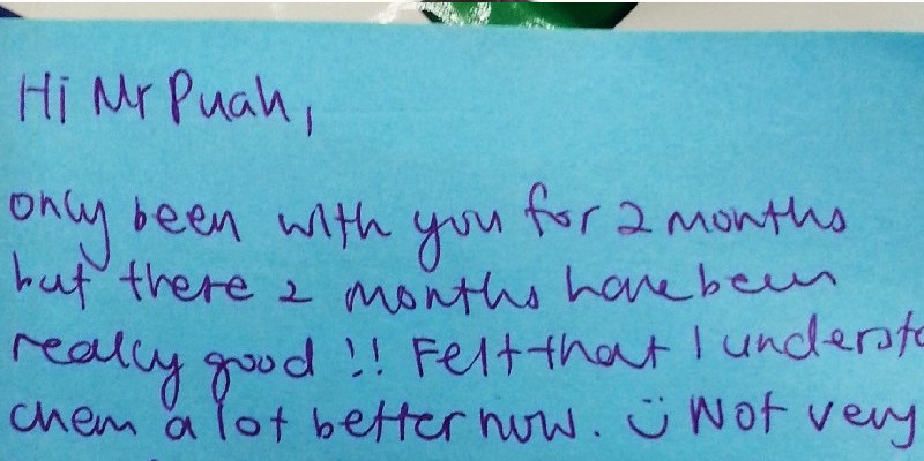 Hi Mr Puah,
only been with you for 2 months
but there 2 months have been
really good !! Felt that I understa
chem a lot better now. ü Not very